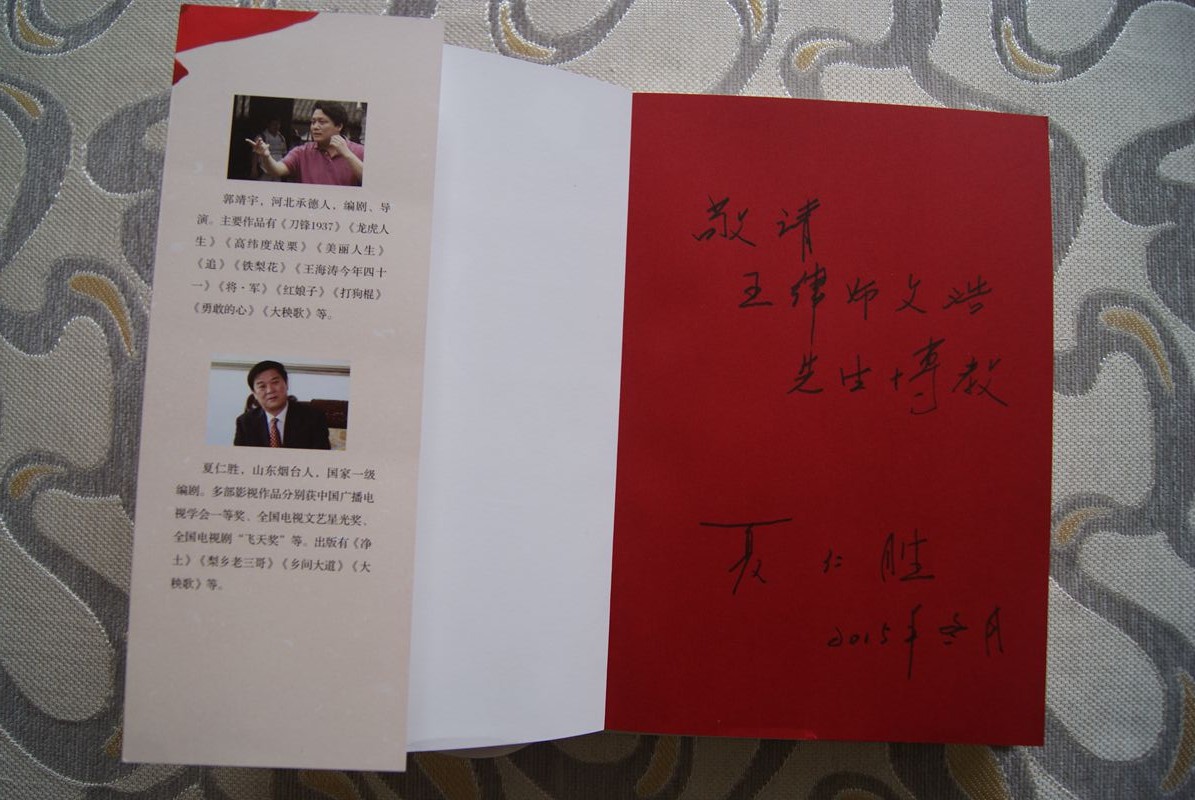 郭靖宇，河北承德人，编剧、导
演。主要作品有《刀锋1937》《龙虎人
生》《高纬度战栗》《美丽人生》
《追》《铁梨花》《王海涛今年四十
一》《将·军》《红娘子》《打狗棍》
《勇敢的心》《大秧歌》等。
夏仁胜，山东烟台人，国家一级
编剧。多部影视作品分别获中国广播电
视学会一等奖、全国电视文艺星光奖、
全国电视剧“飞天奖”等。出版有《净
土》《梨乡老三哥》《乡间大道》《大
秧歌》等。
敬请
王律师文浩
先生博教
夏仁胜
2015年 月